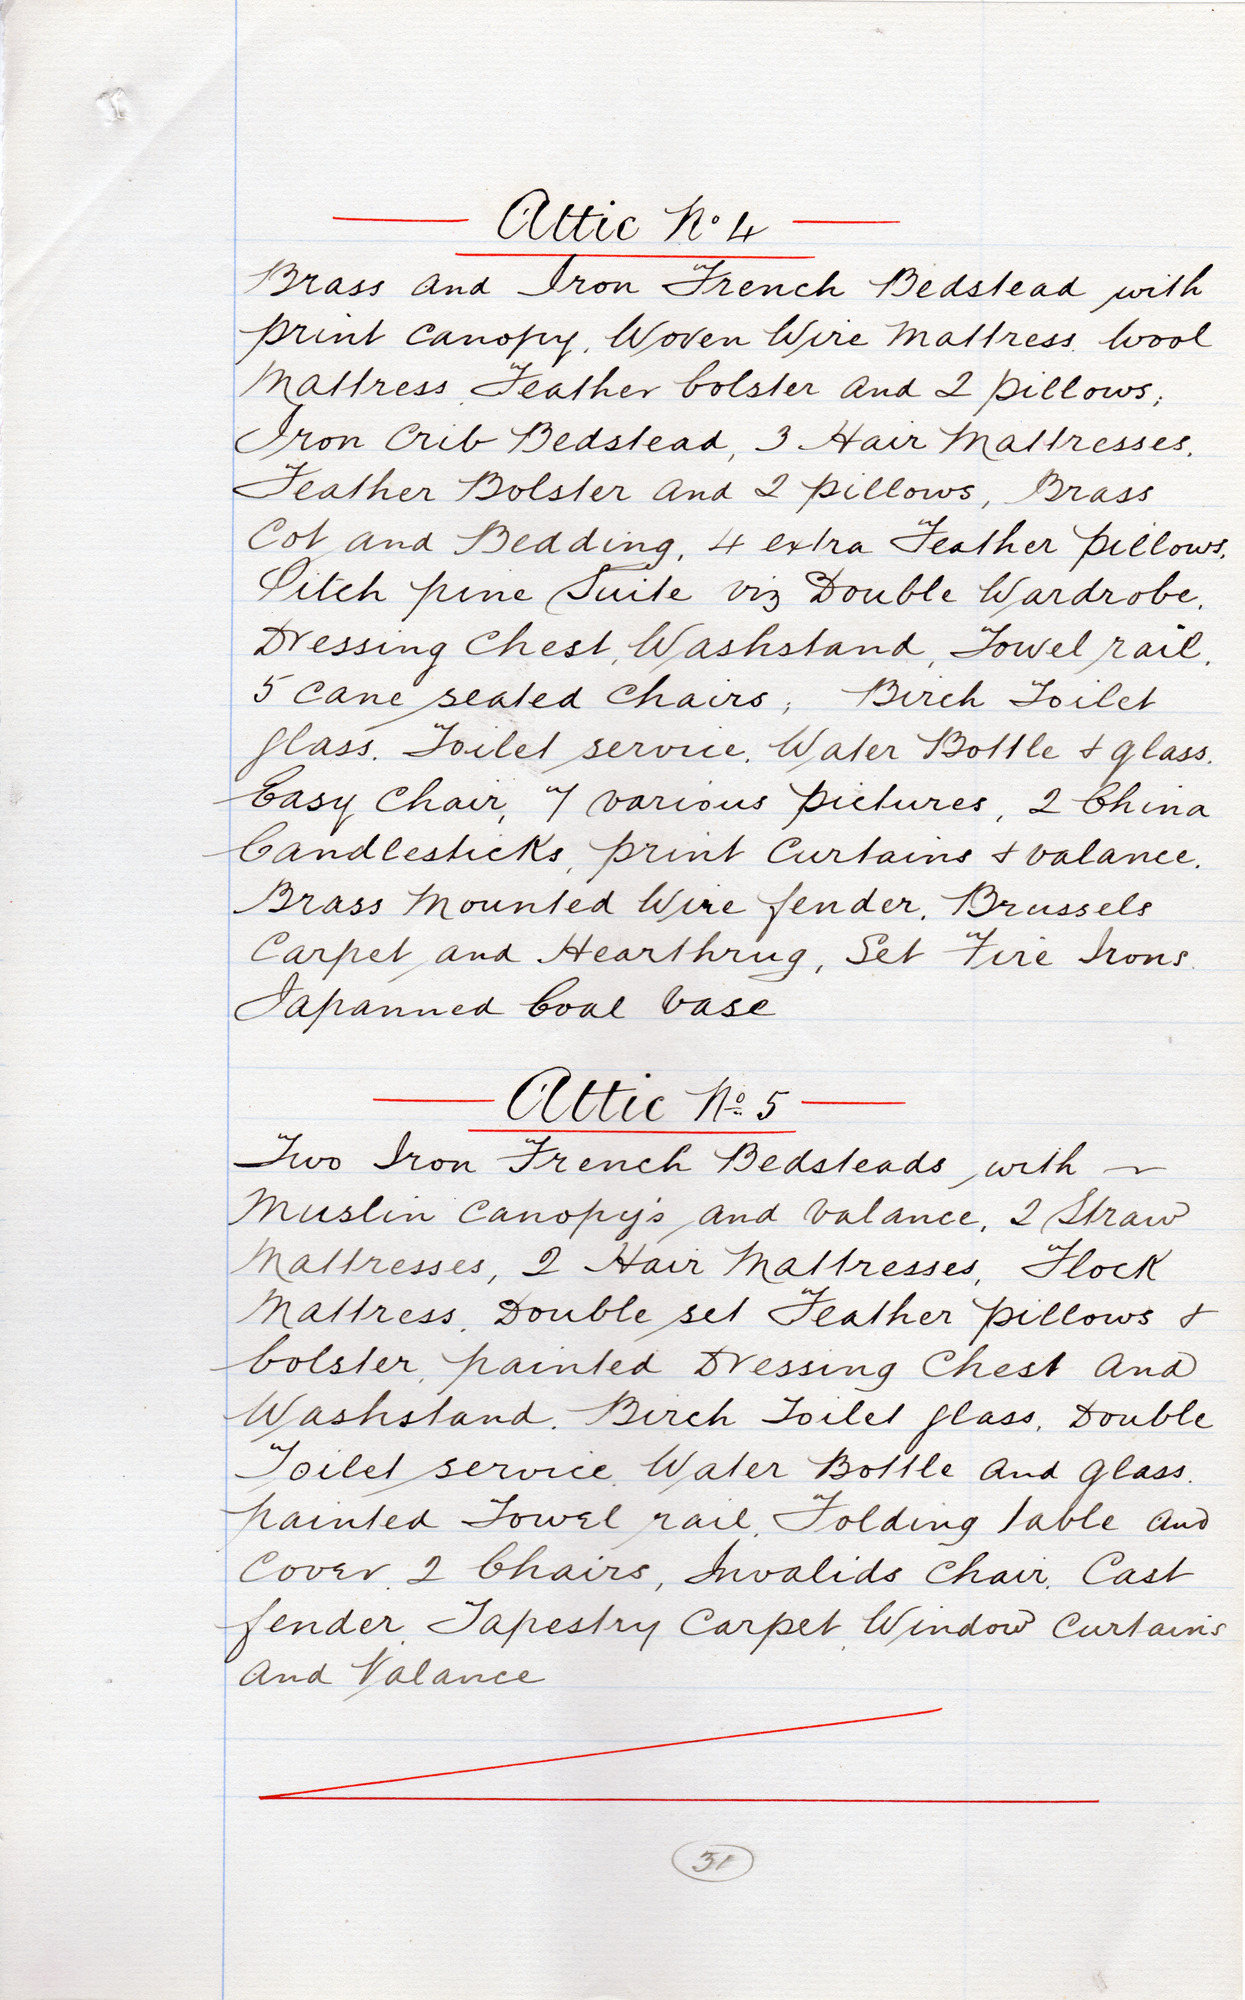 Attic No 4
Brass and Iron French Bedstead with
print canopy, Woven Wire Mattress. Wool
Mattress, Feather bolster and 2 pillows;
Iron Crib Bedstead, 3 Hair Mattresses.
Feather Bolster and 2 pillows, Brass
Cot and Bedding, 4 extra Feather pillows.
Pitch pine Suite viz Double Wardrobe.
Dressing Chest, Washstand, Towel rail.
5 cane seated chairs; Birch Toilet
glass. Toilet service. Water Bottle & glass.
Easy Chair, 7 various pictures, 2 China
Candlesticks, print Curtains & valance.
Brass Mounted Wire fender, Brussels
Carpet and Hearthrug, Set Fire Irons.
Japanned Coal Vase
Attic No. 5
Two Iron French Bedsteads with ~
Muslin canopy's and valance, 2 Straw
Mattresses, 2 Hair Mattresses, Flock
Mattress. Double set Feather pillows &
bolster, painted Dressing Chest and
Washstand. Birch Toilet glass, Double
Toilet service. Water Bottle and glass.
painted Towel rail. Folding table and
cover. 2 Chairs, Invalids chair. Cast
fender Tapestry Carpet, Window Curtains
and Valance
31